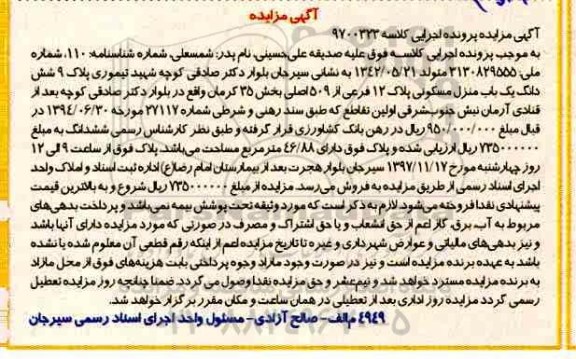 آگهی مزایده
آگهی مزایده پرونده اجرایی کلاسه ۹۷۰۰۳۲۳
به موجب پرونده اجرایی کلاسه فوق علیه صدیقه علی‌حسینی، نام پدر: شمسعلی، شماره شناسنامه: ۱۱۰، شماره
ملی: ۳۱۳۰۸۲۹۵۵۵ متولد ۱۳۴۲/۰۵/۲۱ به نشانی سیرجان بلوار دکتر صادقی کوچه شهید تیموری پلاک ۹ شش
دانگ یک باب منزل مسکونی پلاک ۱۲ فرعی از ۵۰۹ اصلی بخش ۳۵ کرمان واقع در بلوار دکتر صادقی کوچه بعد از
قنادی آرمان نبش جنوب‌شرقی اولین تقاطع که طبق سند رهنی و شرطی شماره ۳۷۱۱۷ مورخه ۱۳۹۴/۰۶/۳۰ در
قبال مبلغ ۹۵۰/۰۰۰/۰۰۰ ریال در رهن بانک کشاورزی قرار گرفته و طبق نظر کارشناس رسمی ششدانگ به مبلغ
۷۳۵۰۰۰۰۰۰۰ ریال ارزیابی شده و پلاک فوق دارای ۴۶/۸۸ مترمربع مساحت می‌باشد. پلاک فوق از ساعت ۹ الی ۱۲
روز چهارشنبه مورخ ۱۳۹۷/۱۱/۱۷ سیرجان بلوار هجرت بعد از بیمارستان امام رضا(ع) اداره ثبت اسناد و املاک واحد
اجرای اسناد رسمی از طریق مزایده به فروش می‌رسد. مزایده از مبلغ ۷۳۵۰۰۰۰۰۰۰ ریال شروع و به بالاترین قیمت
پیشنهادی نقدا فروخته می‌شود. لازم به ذکر است که مورد وثیقه تحت پوشش بیمه نمی‌باشد و پرداخت بدهی‌های
مربوط به آب، برق، گاز اعم از حق انشعاب و یا حق اشتراک و مصرف در صورتی که مورد مزایده دارای آنها باشد
و نیز بدهی‌های مالیاتی و عوارض شهرداری و غیره تا تاریخ مزایده اعم از اینکه رقم قطعی آن معلوم شده یا نشده
باشد به عهده برنده مزایده است و نیز در صورت وجود مازاد وجوه پرداختی بابت هزینه‌های فوق از محل مازاد
به برنده مزایده مسترد خواهد شد و نیم‌عشر و حق مزایده نقدا وصول می‌گردد. ضمنا چنانچه روز مزایده تعطیل
رسمی گردد مزایده روز اداری بعد از تعطیلی در همان ساعت و مکان مقرر برگزار خواهد شد.
۴۹۴۹ م/الف- صالح آزادی- مسئول واحد اجرای اسناد رسمی سیرجان